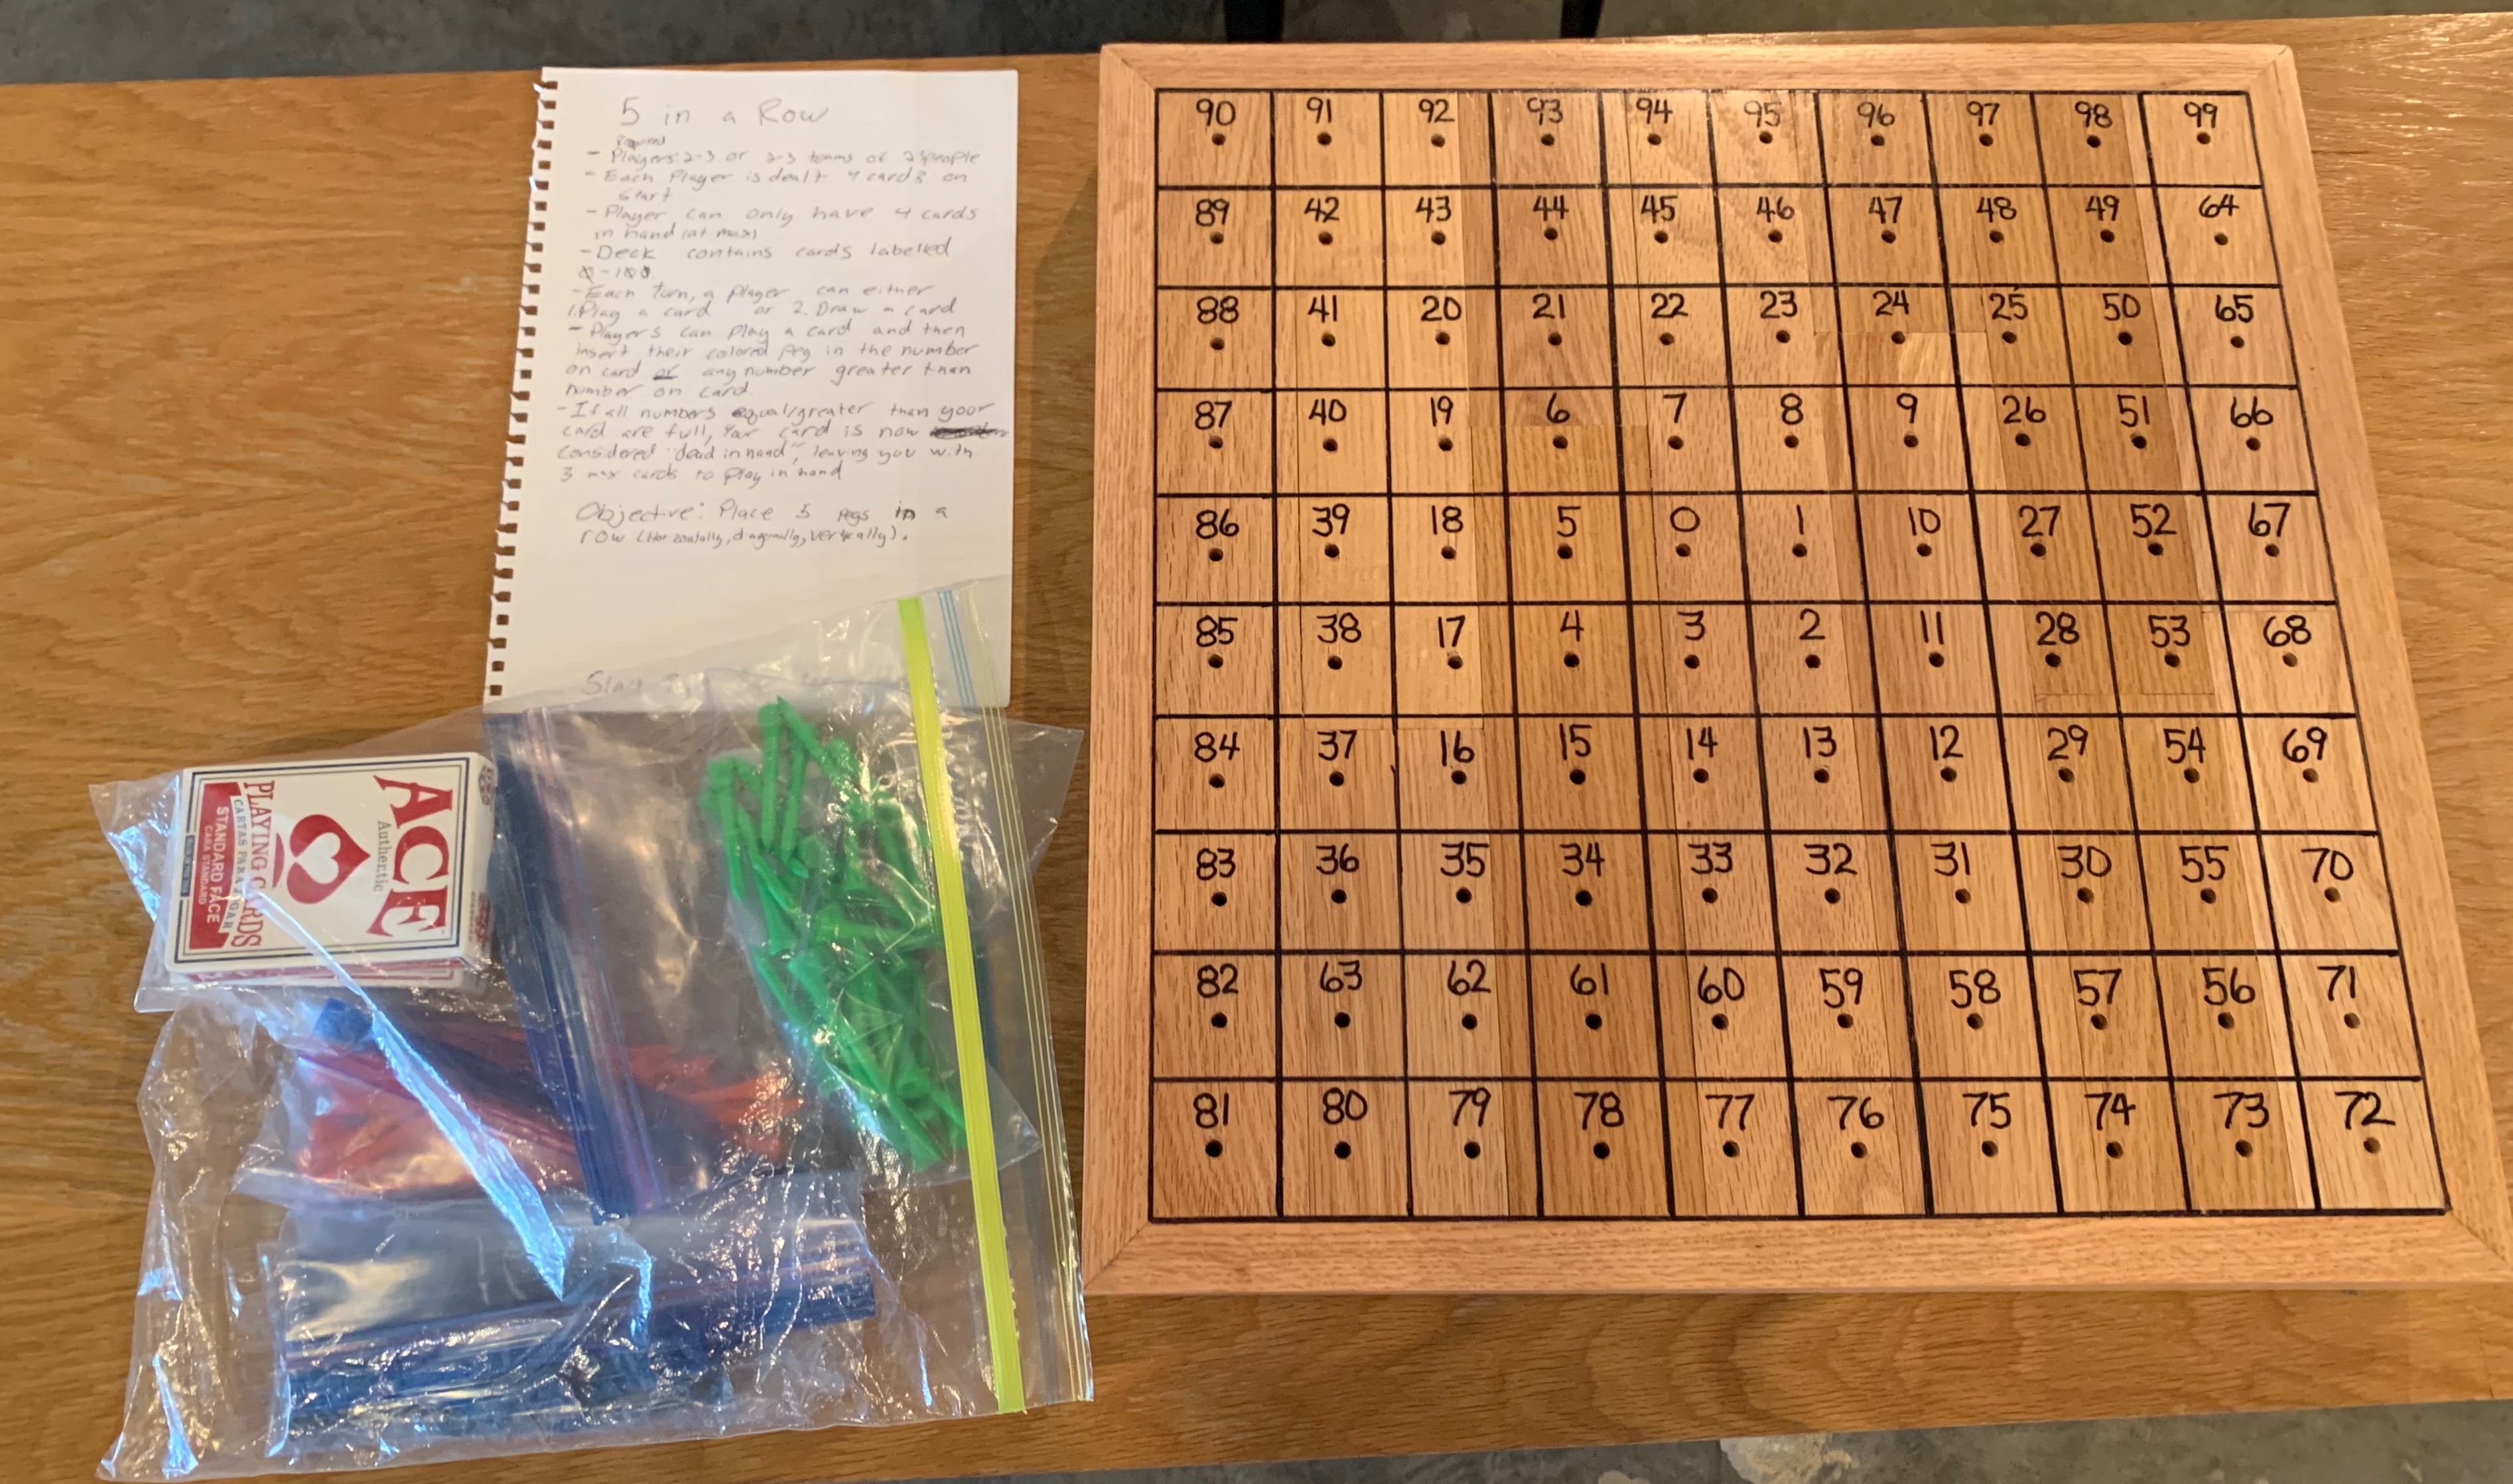 5 in a Row
- Players: 2-3 or 2-3 teams of 2 people
- Each Player is dealt 4 cards on
start
- Player can only have 4 cards
in hand (at max)
- Deck contains cards labelled
- Each Turn, a player can either
1. Play a card or 2. Draw a card
- Players can play a card and then
insert their colored peg in the number
on card or any number greater than
number on card.
- If all numbers equal/greater than your
card are full, Your card is now
considered "dead in hand", leaving you with
3 max cards to play in hand
Objective: Place 5 pegs in a
row (Horizontally, diagonally, vertically).
ACE
Authentic
PLAYING CARDS
CARTAS PARA JUGAR
STANDARD FACE
CARA STANDARD
90 91 92 93 94 95 96 97 98 99
89 42 43 44 45 46 47 48 49 64
88 41 20 21 22 23 24 25 50 65
87 40 19 6 7 8 9 26 51 66
86 39 18 5 0 1 10 27 52 67
85 38 17 4 3 2 11 28 53 68
84 37 16 15 14 13 12 29 54 69
83 36 35 34 33 32 31 30 55 70
82 63 62 61 60 59 58 57 56 71
81 80 79 78 77 76 75 74 73 72